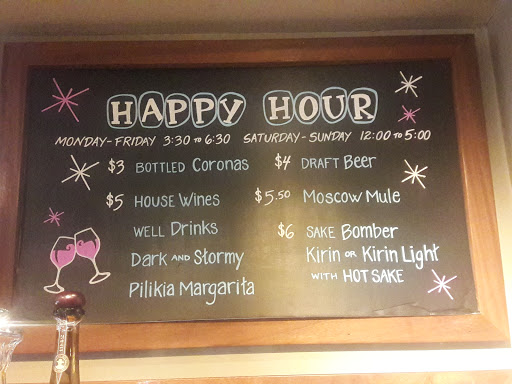 HAPPY HOUR
MONDAY-FRIDAY 3:30 TO 6:30 SATURDAY-SUNDAY 12:00 TO 5:00
$3 BOTTLED Coronas
$4 DRAFT Beer
$5 HOUSE Wines
$5.50 Moscow Mule
WELL Drinks
$6 SAKE Bomber
Dark AND Stormy
Kirin OR Kirin Light
Pilikia Margarita
WITH HOT SAKE